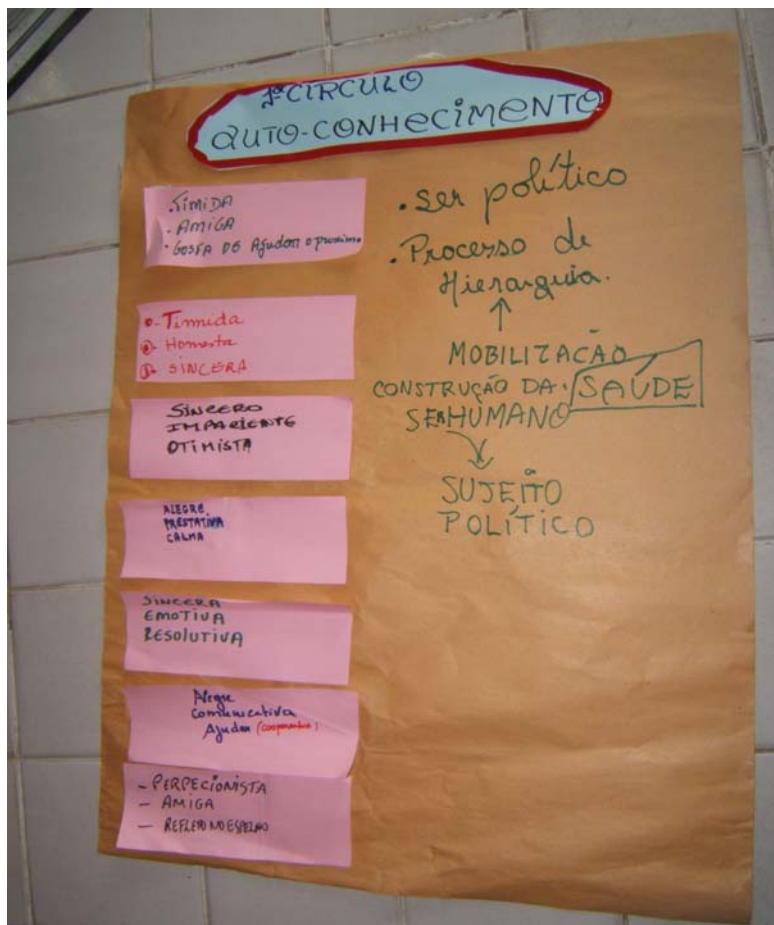 1º CÍRCULO
AUTO-CONHECIMENTO
.TIMIDA
- AMIGA
• GOSTA DE AJUDAR o proximo
- Timida
Honesta
SINCERA
SINCERO
IMPACIENTE
OTIMISTA
ALEGRE
PRESTATIVA
CALMA
SINCERA
EMOTIVA
RESOLUTIVA
Alegre
Comunicativa
Ajudar (cooperativa)
- PERPECIONISTA
- AMIGA
- REFLETO NO ESPELHO
. Ser político
. Processo de
Hierarquia.
↑
MOBILIZACÃO
CONSTRUÇÃO DA: SAÚDE
SER HUMANO
SUJEITO
POLÍTICO